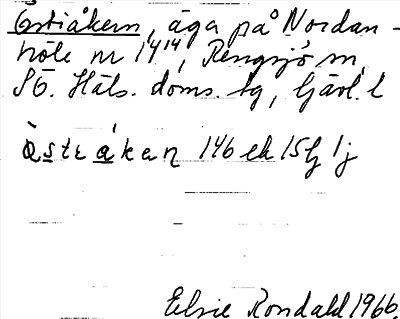 Östiåkern, äga på Nordan-
höle nr 14¹⁴, Rengsjö sn,
SÖ. Häls. doms. lg, Gävl. l
Östiåkan 146 ek 15 lj
Elsie Rondahl 1966.